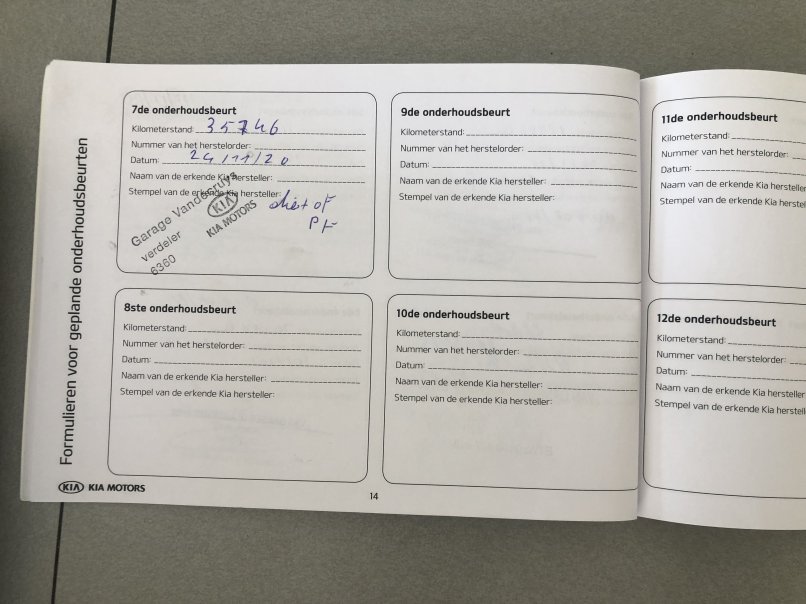 Formulieren voor geplande onderhoudsbeurten
7de onderhoudsbeurt
Kilometerstand: 35746
Nummer van het herstelorder:
Datum: 24/11/20
Naam van de erkende Kia hersteller:
Stempel van de erkende Kia hersteller:
Garage
verdeler
6360
KIA
KIA MOTORS
8ste onderhoudsbeurt
Kilometerstand:
Nummer van het herstelorder:
Datum:
Naam van de erkende Kia hersteller:
Stempel van de erkende Kia hersteller:
9de onderhoudsbeurt
Kilometerstand:
Nummer van het herstelorder:
Datum:
Naam van de erkende Kia hersteller:
Stempel van de erkende Kia hersteller:
10de onderhoudsbeurt
Kilometerstand:
Nummer van het herstelorder:
Datum:
Naam van de erkende Kia hersteller:
Stempel van de erkende Kia hersteller:
11de onderhoudsbeurt
Kilometerstand:
Nummer van het herstelorder:
Datum:
Naam van de erkende Kia hersteller
Stempel van de erkende Kia
12de onderhoudsbeurt
Kilometerstand:
Nummer van het herstelorder:
Datum:
Naam van de erkende Kia hersteller
Stempel van de erkende Kia
KIA KIA MOTORS
14